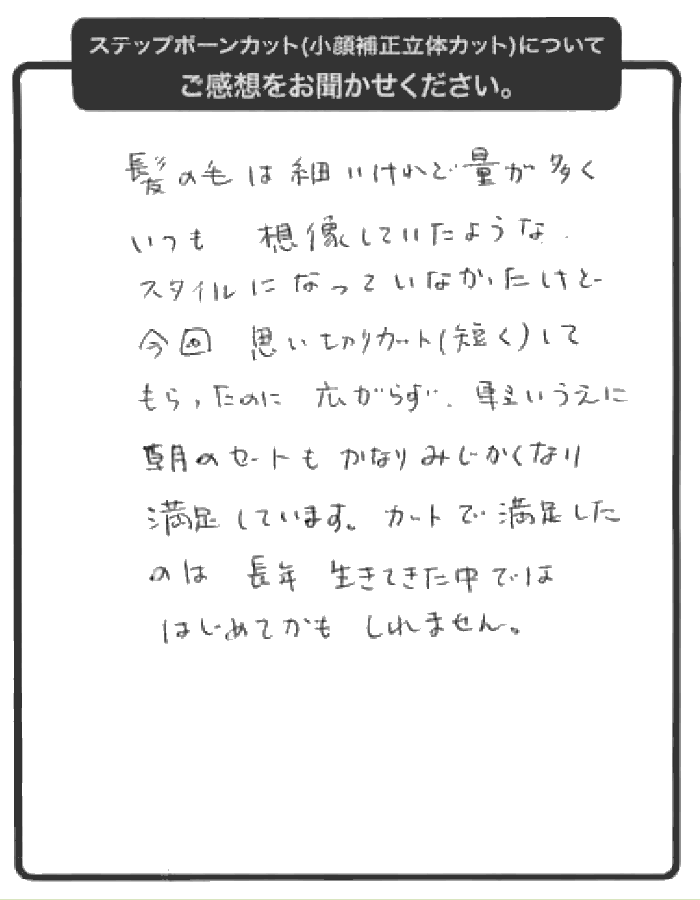 ステップボーンカット(小顔補正立体カット)について
ご感想をお聞かせください。
髪の毛は細いけれど量が多く
いつも 想像していたような
スタイルになっていなかったけど
今回 思い切りカット(短く)して
もらったのに 広がらず、軽いうえに
朝のセートもかなりみじかくなり
満足しています。カートで満足した
のは 長年 生きてきた中では
はじめてかも しれません。